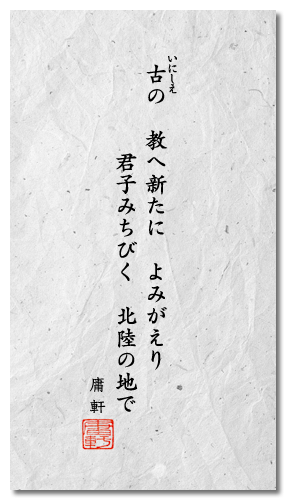 いにしえ
古の　教へ新たに　よみがえり
君子みちびく　北陸の地で
庸軒
庸軒